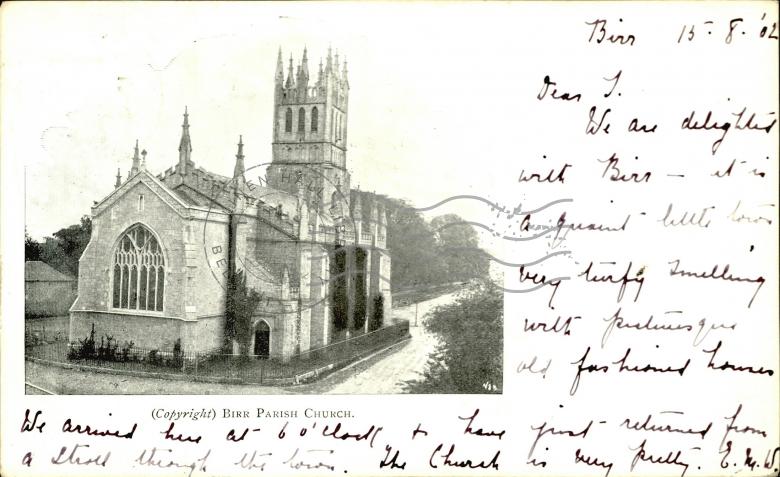 Birr 15.8.'02
Dear J.
We are delighted
with Birr – it is
a quaint little town
very turfy smelling
with picturesque
old fashioned houses
(Copyright) BIRR PARISH CHURCH.
We arrived here at 6 o'clock & have just returned from
a stroll through the town. The Church is very pretty. E.M.W.